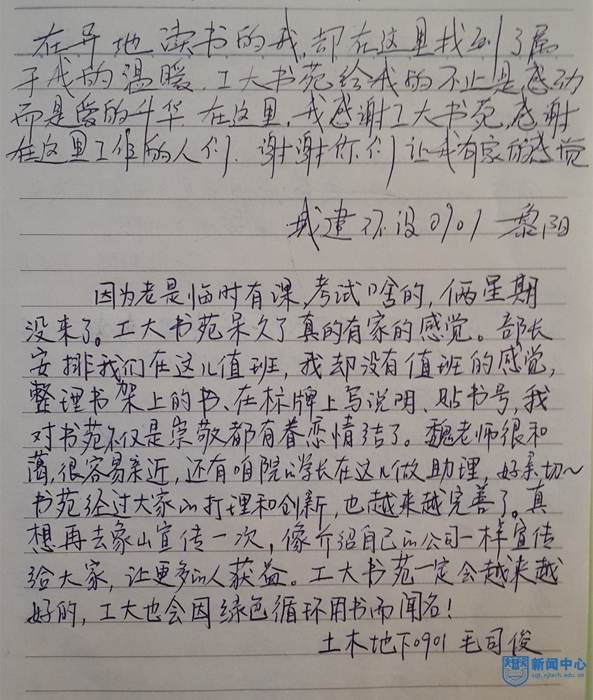 在异地读书的我,却在这里找到了属
于我的温暖.工大书苑给我的不止是感动
而是爱的升华.在这里,我感谢工大书苑,感谢
在这里工作的人们.谢谢你们让我有家的感觉
城建环设0901 黎阳
因为老是临时有课,考试啥的,俩星期
没来了。工大书苑呆久了真的有家的感觉。部长
安排我们在这儿值班,我却没有值班的感觉,
整理书架上的书、在标牌上写说明、贴书号,我
对书苑不仅是崇敬都有眷恋情结了。魏老师很和
蔼,很容易亲近,还有咱院的学长在这儿做助理,好亲切~
书苑经过大家的打理和创新,也越来越完善了。真
想再去象山宣传一次,像介绍自己的公司一样宣传
给大家,让更多的人获益。工大书苑一定会越来越
好的,工大也会因绿色循环用书而闻名!
土木地下0901 毛司俊
新闻中心
cgt.njtech.edu.cn